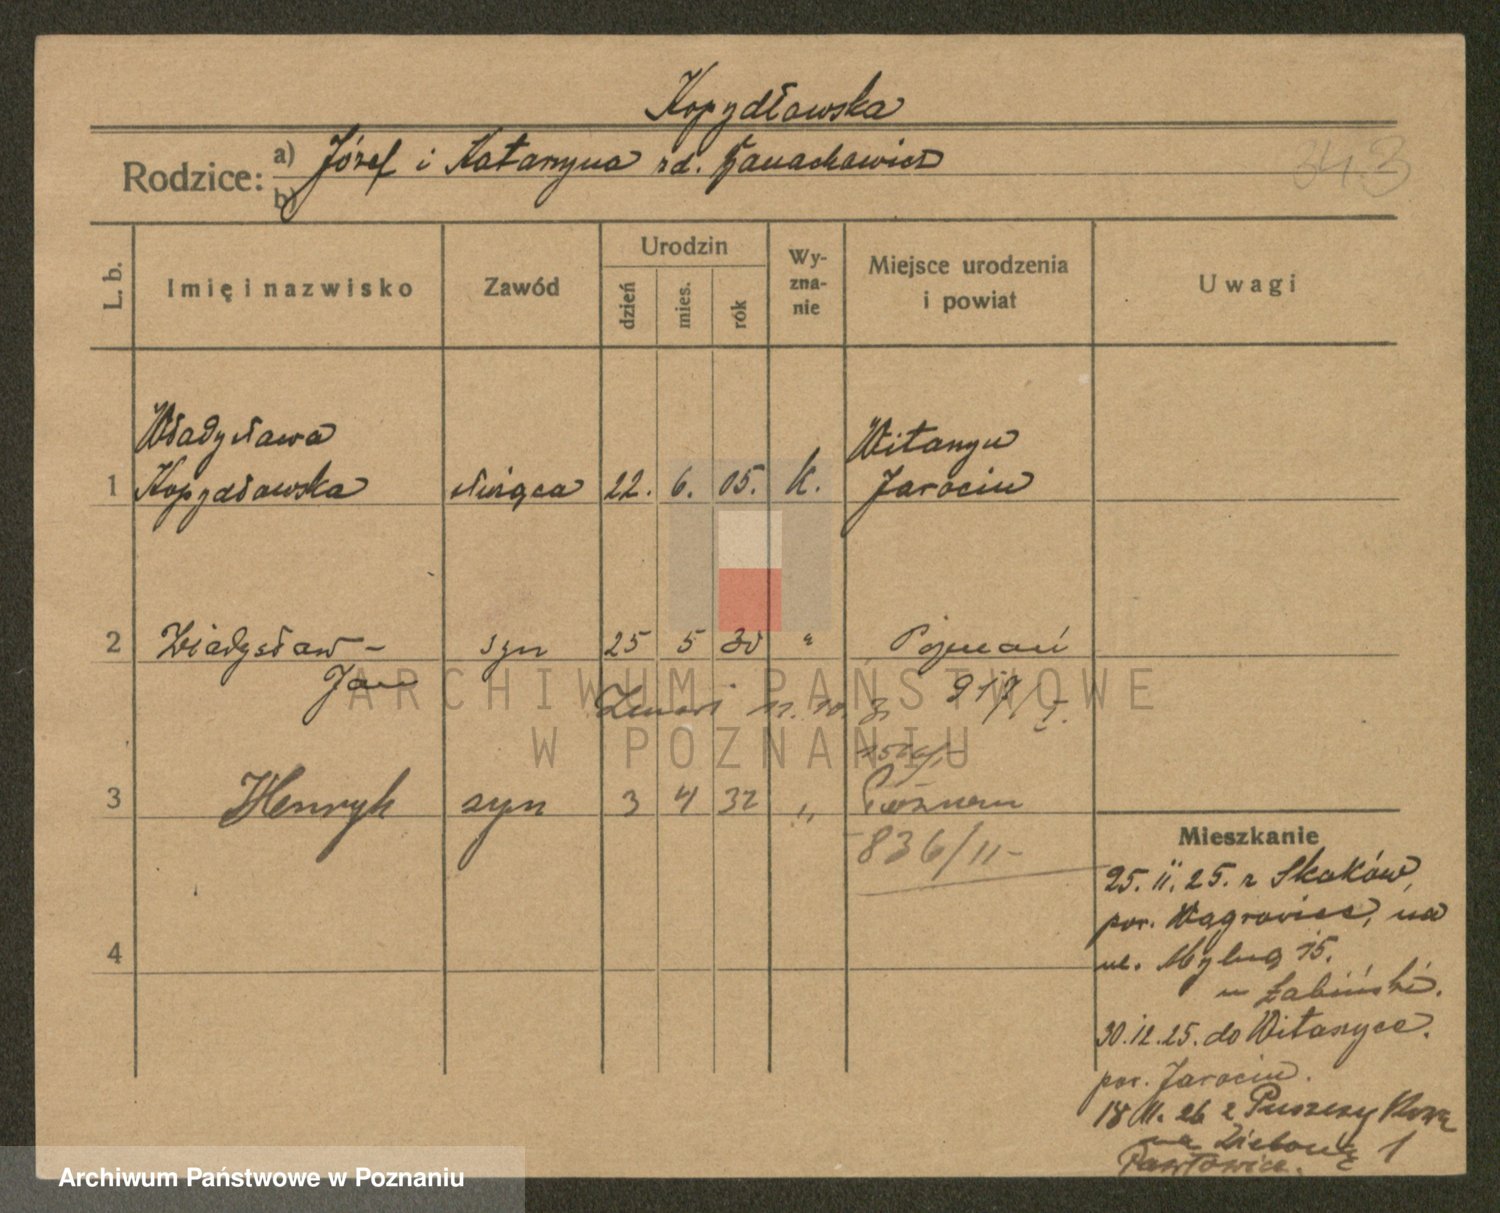 Kopydłowska
Rodzice: a) Józef i Katarzyna zd.
b)
343
L. b. Imię i nazwisko Zawód Urodzin dzień mies. rok Wy-zna-nie Miejsce urodzenia i powiat Uwagi
Władysława
Witaszyce
1 Kopydłowska służąca 22. 6. 05. k. Jarocin
2 Władysław - syn 25 5 30 " Poznań
Jan
917/I.
Zmarł 11. 10. 31
3 Henryk syn 3 4 32 " Poznań
836/II -
4
Mieszkanie
25. II. 25. z Skoków,
pow. Wągrowiec, na
ul. 15.
u Łabiński.
30.12.25. do Witaszyce.
pow. Jarocin.
18 11. 26 z
na Zieloną 1
Pawłowicz.
ARCHIWUM PAŃSTWOWE
W POZNANIU
Archiwum Państwowe w Poznaniu